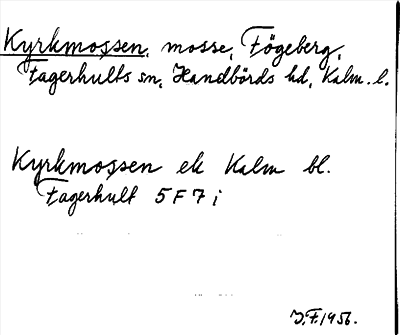 Kyrkmossen, mosse, Fögeberg,
Fagerhults sn, Handbörds hd, Kalm. l.
Kyrkmossen ek Kalm bl.
Fagerhult 5F7i
J.F. 1956.